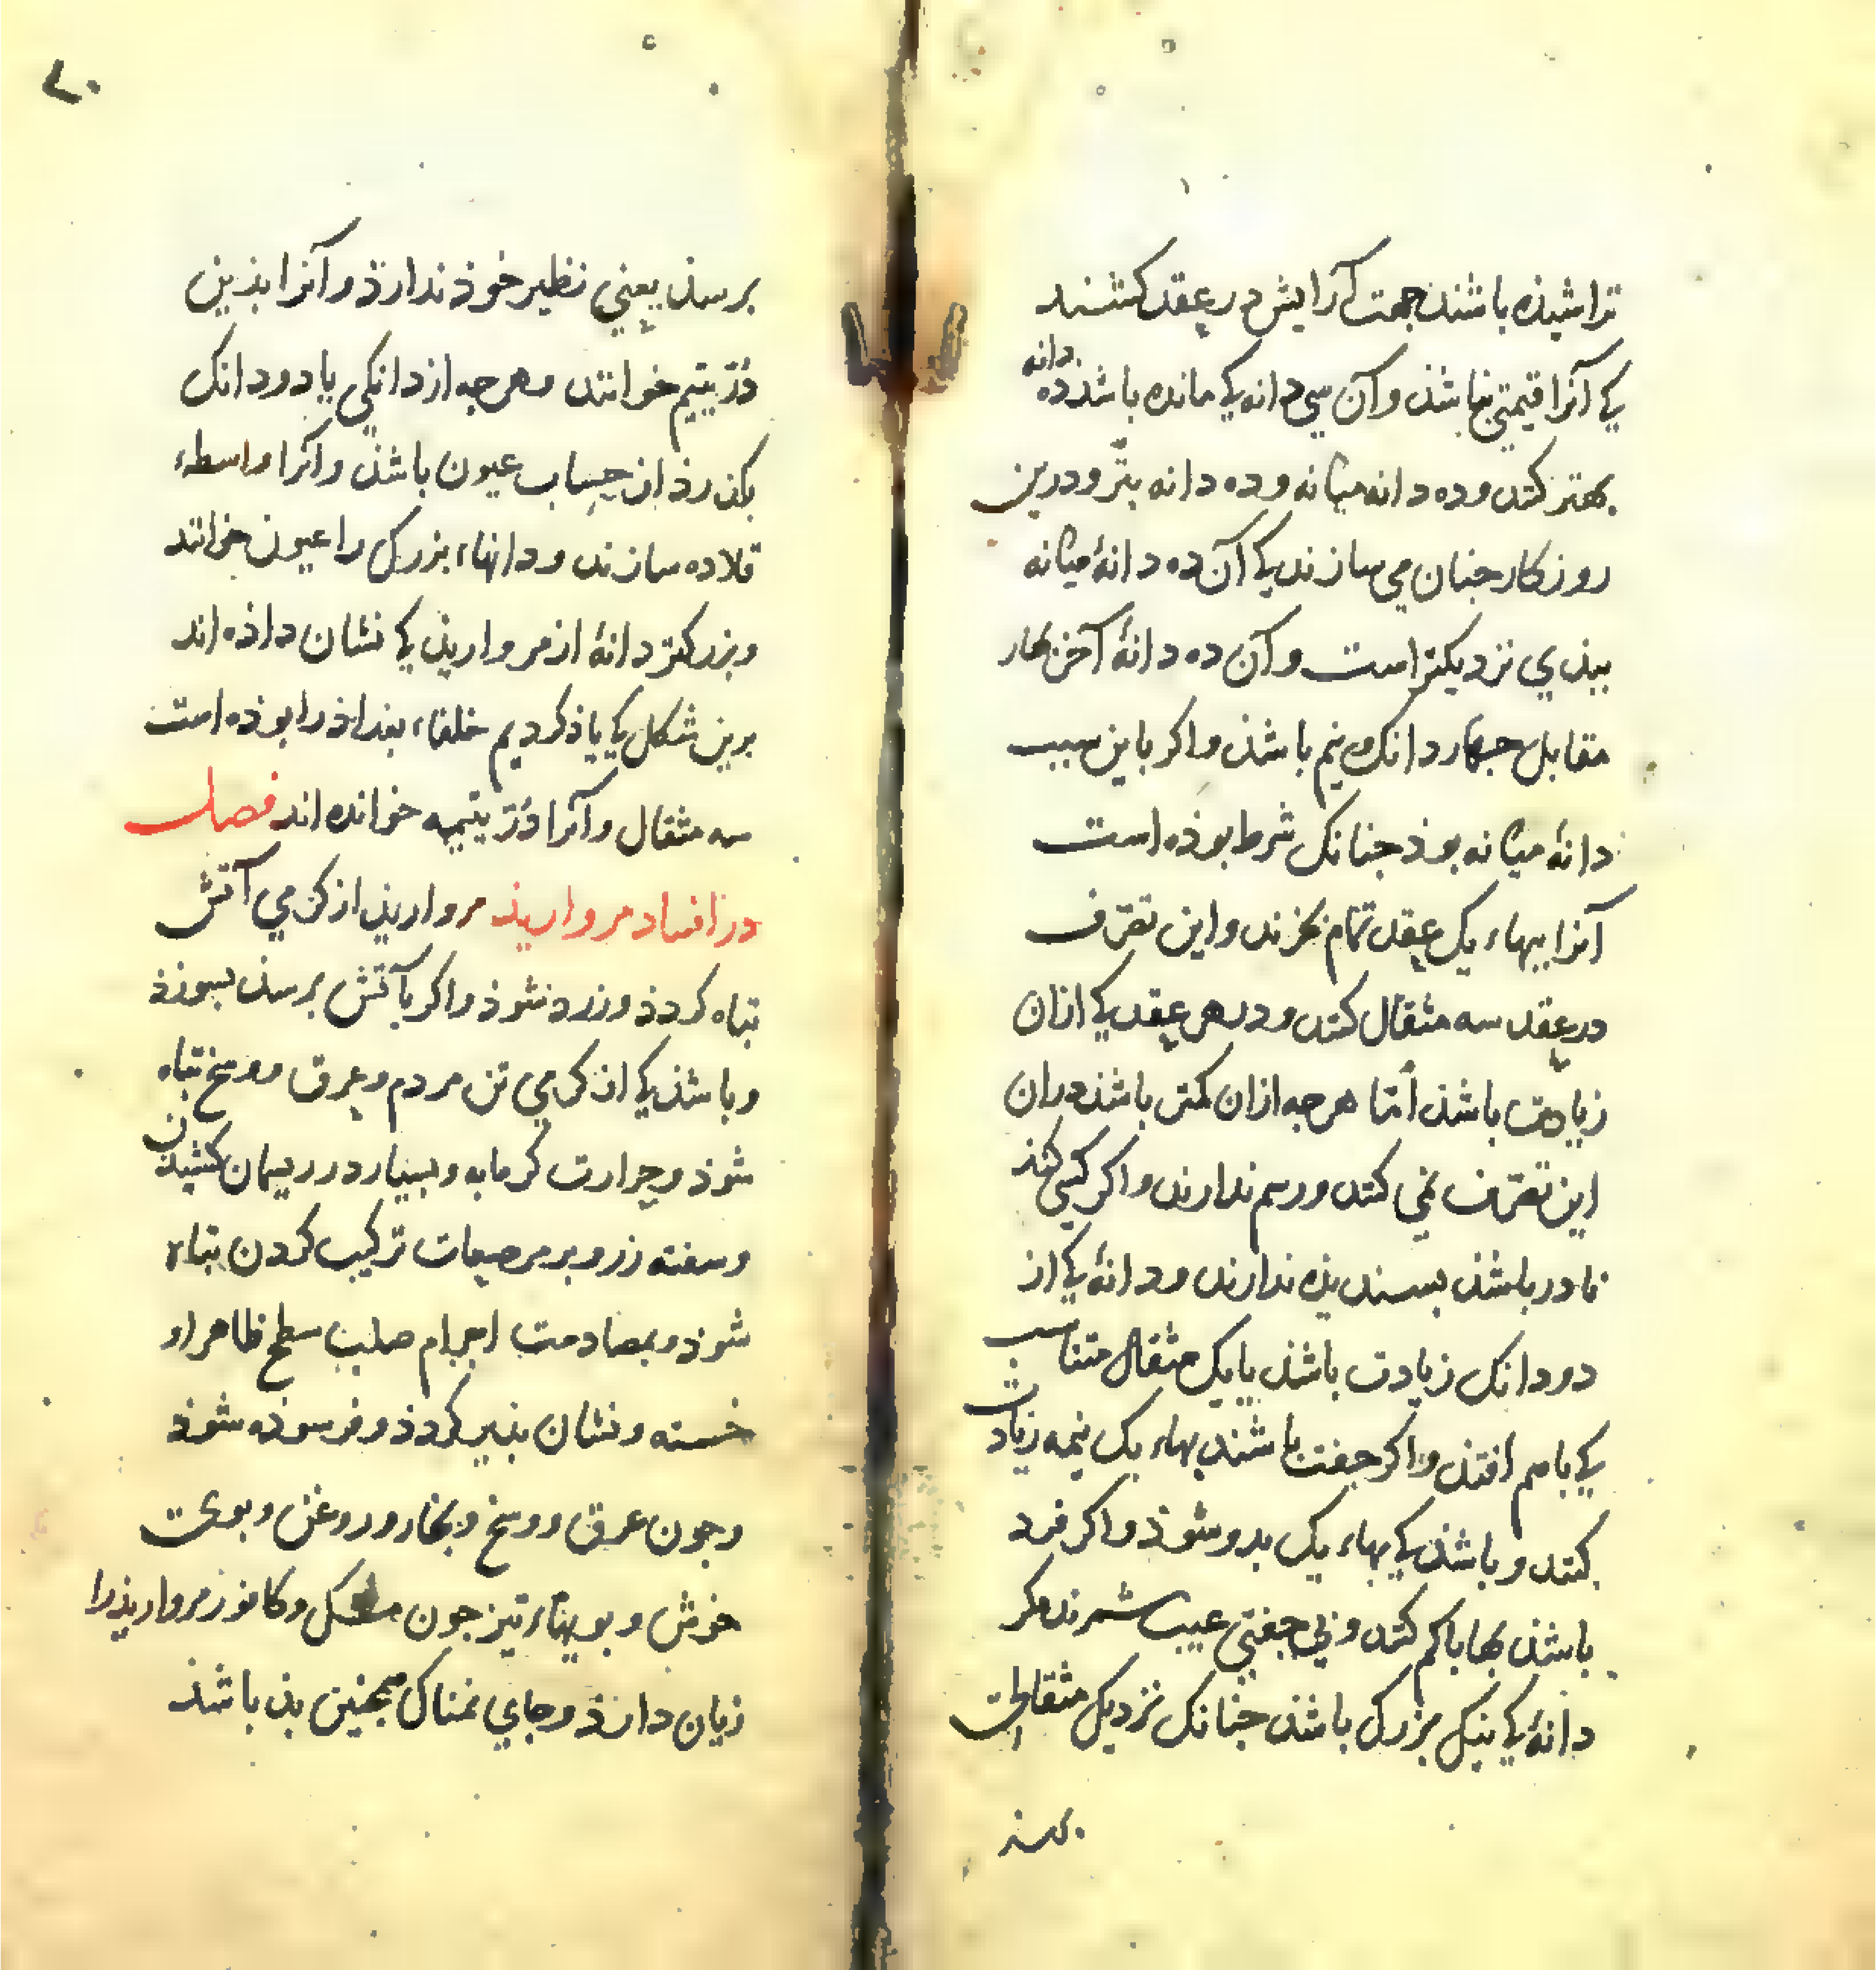 تراشیذه باشند جهت آرایش در عقد کشند
کی آنرا قیمتی نباشذ و آن سی دانه کی مانده باشذ ده دانه
بهتر کنند و ده دانه میانه و ده دانه بتّر و درین
روزکار جنان می سازند کی آن ده دانهٔ میانه
ببذی نزدیکتر است و آن ده دانهٔ آخر بهار
مقابل جهار دانک و نیم باشذ و اکر باین سبب
دانهٔ میانه بوذ جنانک شرط بوذه است
آنرا ببهاء یک عقد تمام بخرند و این تصرّف
در عقد سه مثقال کنند و در هر عقد کی ازان
زیادت باشذ امّا هرجه ازان کمتر باشذ دران
این تصرّف نمی کنند و رسم ندارند و اکر کسی کند
نادر باشذ بسندیذه ندارند و دانهٔ کی از
دو دانک زیادت باشذ یا یک مثقال متناسب
کی باهم افتذ و اکر جفت باشند بهاء یک نیمه زیادت
کنند و باشذ کی بهاء یک بدو شوذ و اکر فرد
باشذ بها باکم کنند و بی جفتی عیب شمرند مکر
دانهٔ کی نیک بزرک باشذ جنانک نزدیک مثقالی
برسذ
۷۰
برسذ یعنی نظیر خوذ ندارذ و آنرا بذین
دُرّ یتیم خوانند و هرجه از دانکی یا دو دانک
بکذرذ از حساب عیون باشذ و آنرا واسطهٔ
قلاده سازند و دانهاء بزرک را عیون خوانند
و بزرکتر دانهٔ از مرواریذ کی نشان داذه اند
برین شکل کی یاذ کردیم خلفاء بغداذ را بوذه است
سه مثقال و آنرا دُرّ یتیمه خوانده اند فصل
در افساد مرواریذ مرواریذ از کرمی آتش
تباه کردذ و زرد شوذ و اکر بآتش برسذ بسوزذ
و باشذ کی از کرمی تن مردم و عرق و وسخ تباه
شوذ و حرارت کرمابه و بسیار در ریسمان کشیذن
و سفته زر و بر مرصعات ترکیب کردن تباه
شوذ و بمصادمت اجرام صلب سطح ظاهر او
خسته و نشان بذیر کردذ و فرسوذه شوذ
و جون عرق و وسخ و بخار و روغن و بوی
خوش و بویهاء تیز جون مشک و کافور مرواریذ را
زیان دارذ و جای نمناک همجنین بذ باشذ